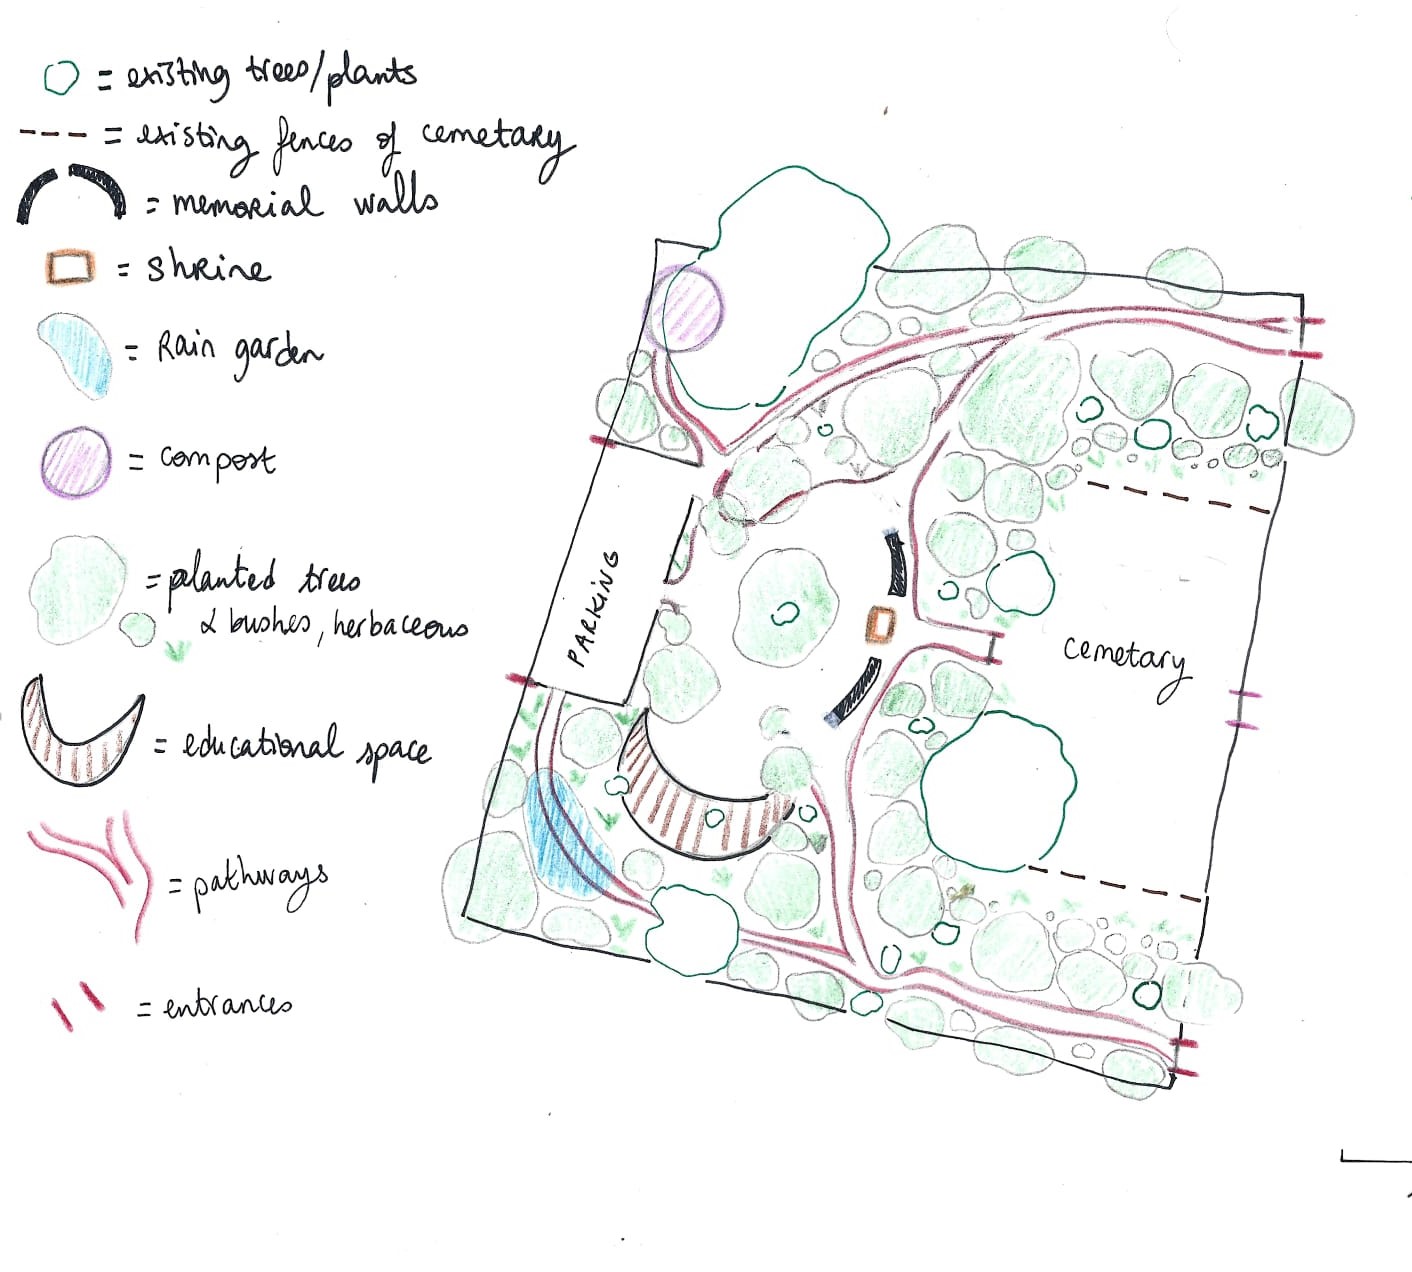 = existing trees/plants
--- = existing fences of cemetary
= memorial walls
= shrine
= Rain garden
= compost
= planted trees
& bushes, herbaceous
= educational space
= pathways
= entrances
PARKING
cemetary